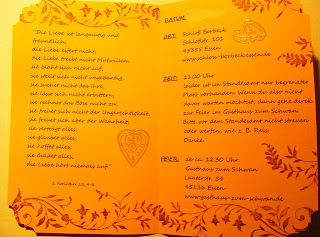 "Die Liebe ist langmütig und
freundlich,
die Liebe eifert nicht,
die Liebe treibt nicht Mutwillen,
sie bläht sich nicht auf,
sie stellt sich nicht ungebärdig,
sie suchet nicht das Ihre,
sie lässt sich nicht erbittern,
sie rechnet das Böse nicht zu,
sie freuet sich nicht der Ungerechtigkeit,
sie freuet sich aber der Wahrheit,
sie verträgt alles,
sie glaubet alles,
sie hoffet alles,
sie duldet alles,
die Liebe hört niemals auf."
1. Korinther 13, 4-8
DATUM:
ORT: Schloß Borbeck
Schloßstr. 101
45355 Essen
www.schloss-borbeck.essen.de
ZEIT: 11.00 Uhr
Leider ist im Standesamt nur begrenzter
Platz vorhanden. Wenn du also nicht
davor warten möchtest, dann gehe direkt
zur Feier im Gasthaus zum Schwan.
Bitte vor dem Standesamt nicht streuen
oder werfen, wie z. B. Reis.
Danke.
FEIER: ab ca. 12.30 Uhr
Gasthaus zum Schwan
45136 Essen
www.gasthaus-zum-schwan.de